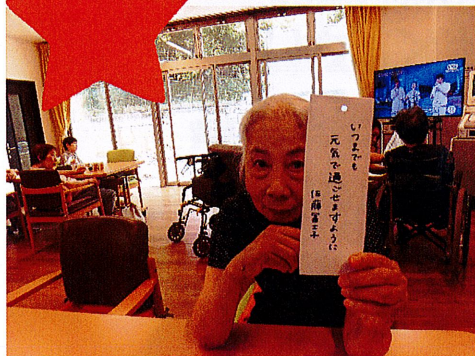 いつまでも
元気で過ごせますように
佐藤富士子